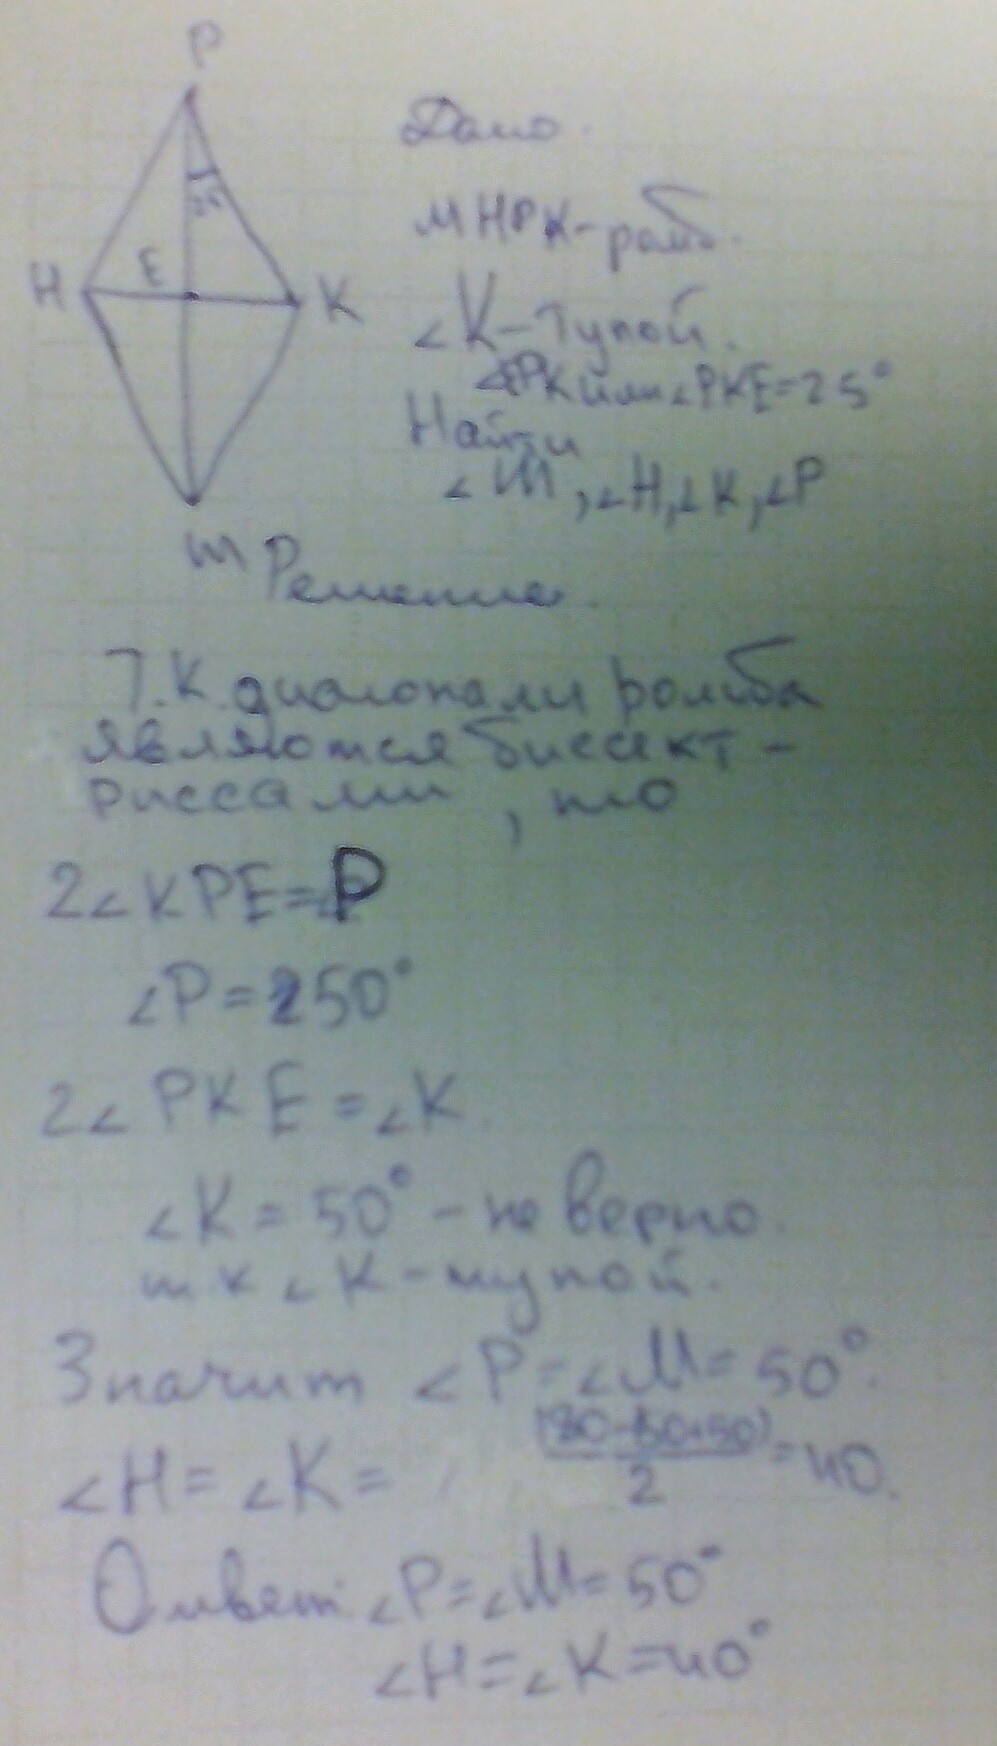 P
25
H E K
m
Дано.
МНРК-ромб.
∠К-Тупой.
∠EPK или ∠PKE=25°
Найти
∠М, ∠Н, ∠К, ∠Р
Решение.
Т.К. диагонали ромба
являются биссект-
риссами, то
2∠KPE=∠P
∠P=50°
2∠PKE=∠K.
∠K=50°-не верно.
т к ∠К-тупой.
Значит ∠P=∠M=50°.
∠H=∠K= (180-(50+50))/2=40.
Ответ: ∠P=∠M=50°
∠H=∠K=40°